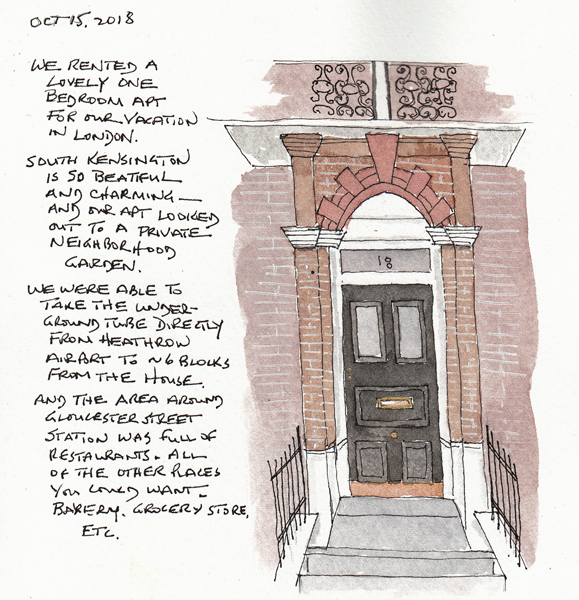 OCT 15, 2018
WE RENTED A
LOVELY ONE
BEDROOM APT
FOR OUR VACATION
IN LONDON.
SOUTH KENSINGTON
IS SO BEATIFUL
AND CHARMING —
AND OUR APT LOOKED
OUT TO A PRIVATE
NEIGHBORHOOD
GARDEN.
WE WERE ABLE TO
TAKE THE UNDER-
GROUND TUBE DIRECTLY
FROM HEATHROW
AIRPORT TO ~6 BLOCKS
FROM THE HOUSE.
AND THE AREA AROUND
GLOUCESTER STREET
STATION WAS FULL OF
RESTAURANTS. ALL
OF THE OTHER PLACES
YOU COULD WANT.
BAKERY, GROCERY STORE,
ETC.
18